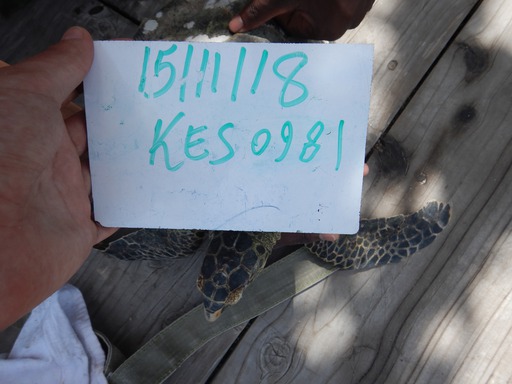 15/11/18
KES0981